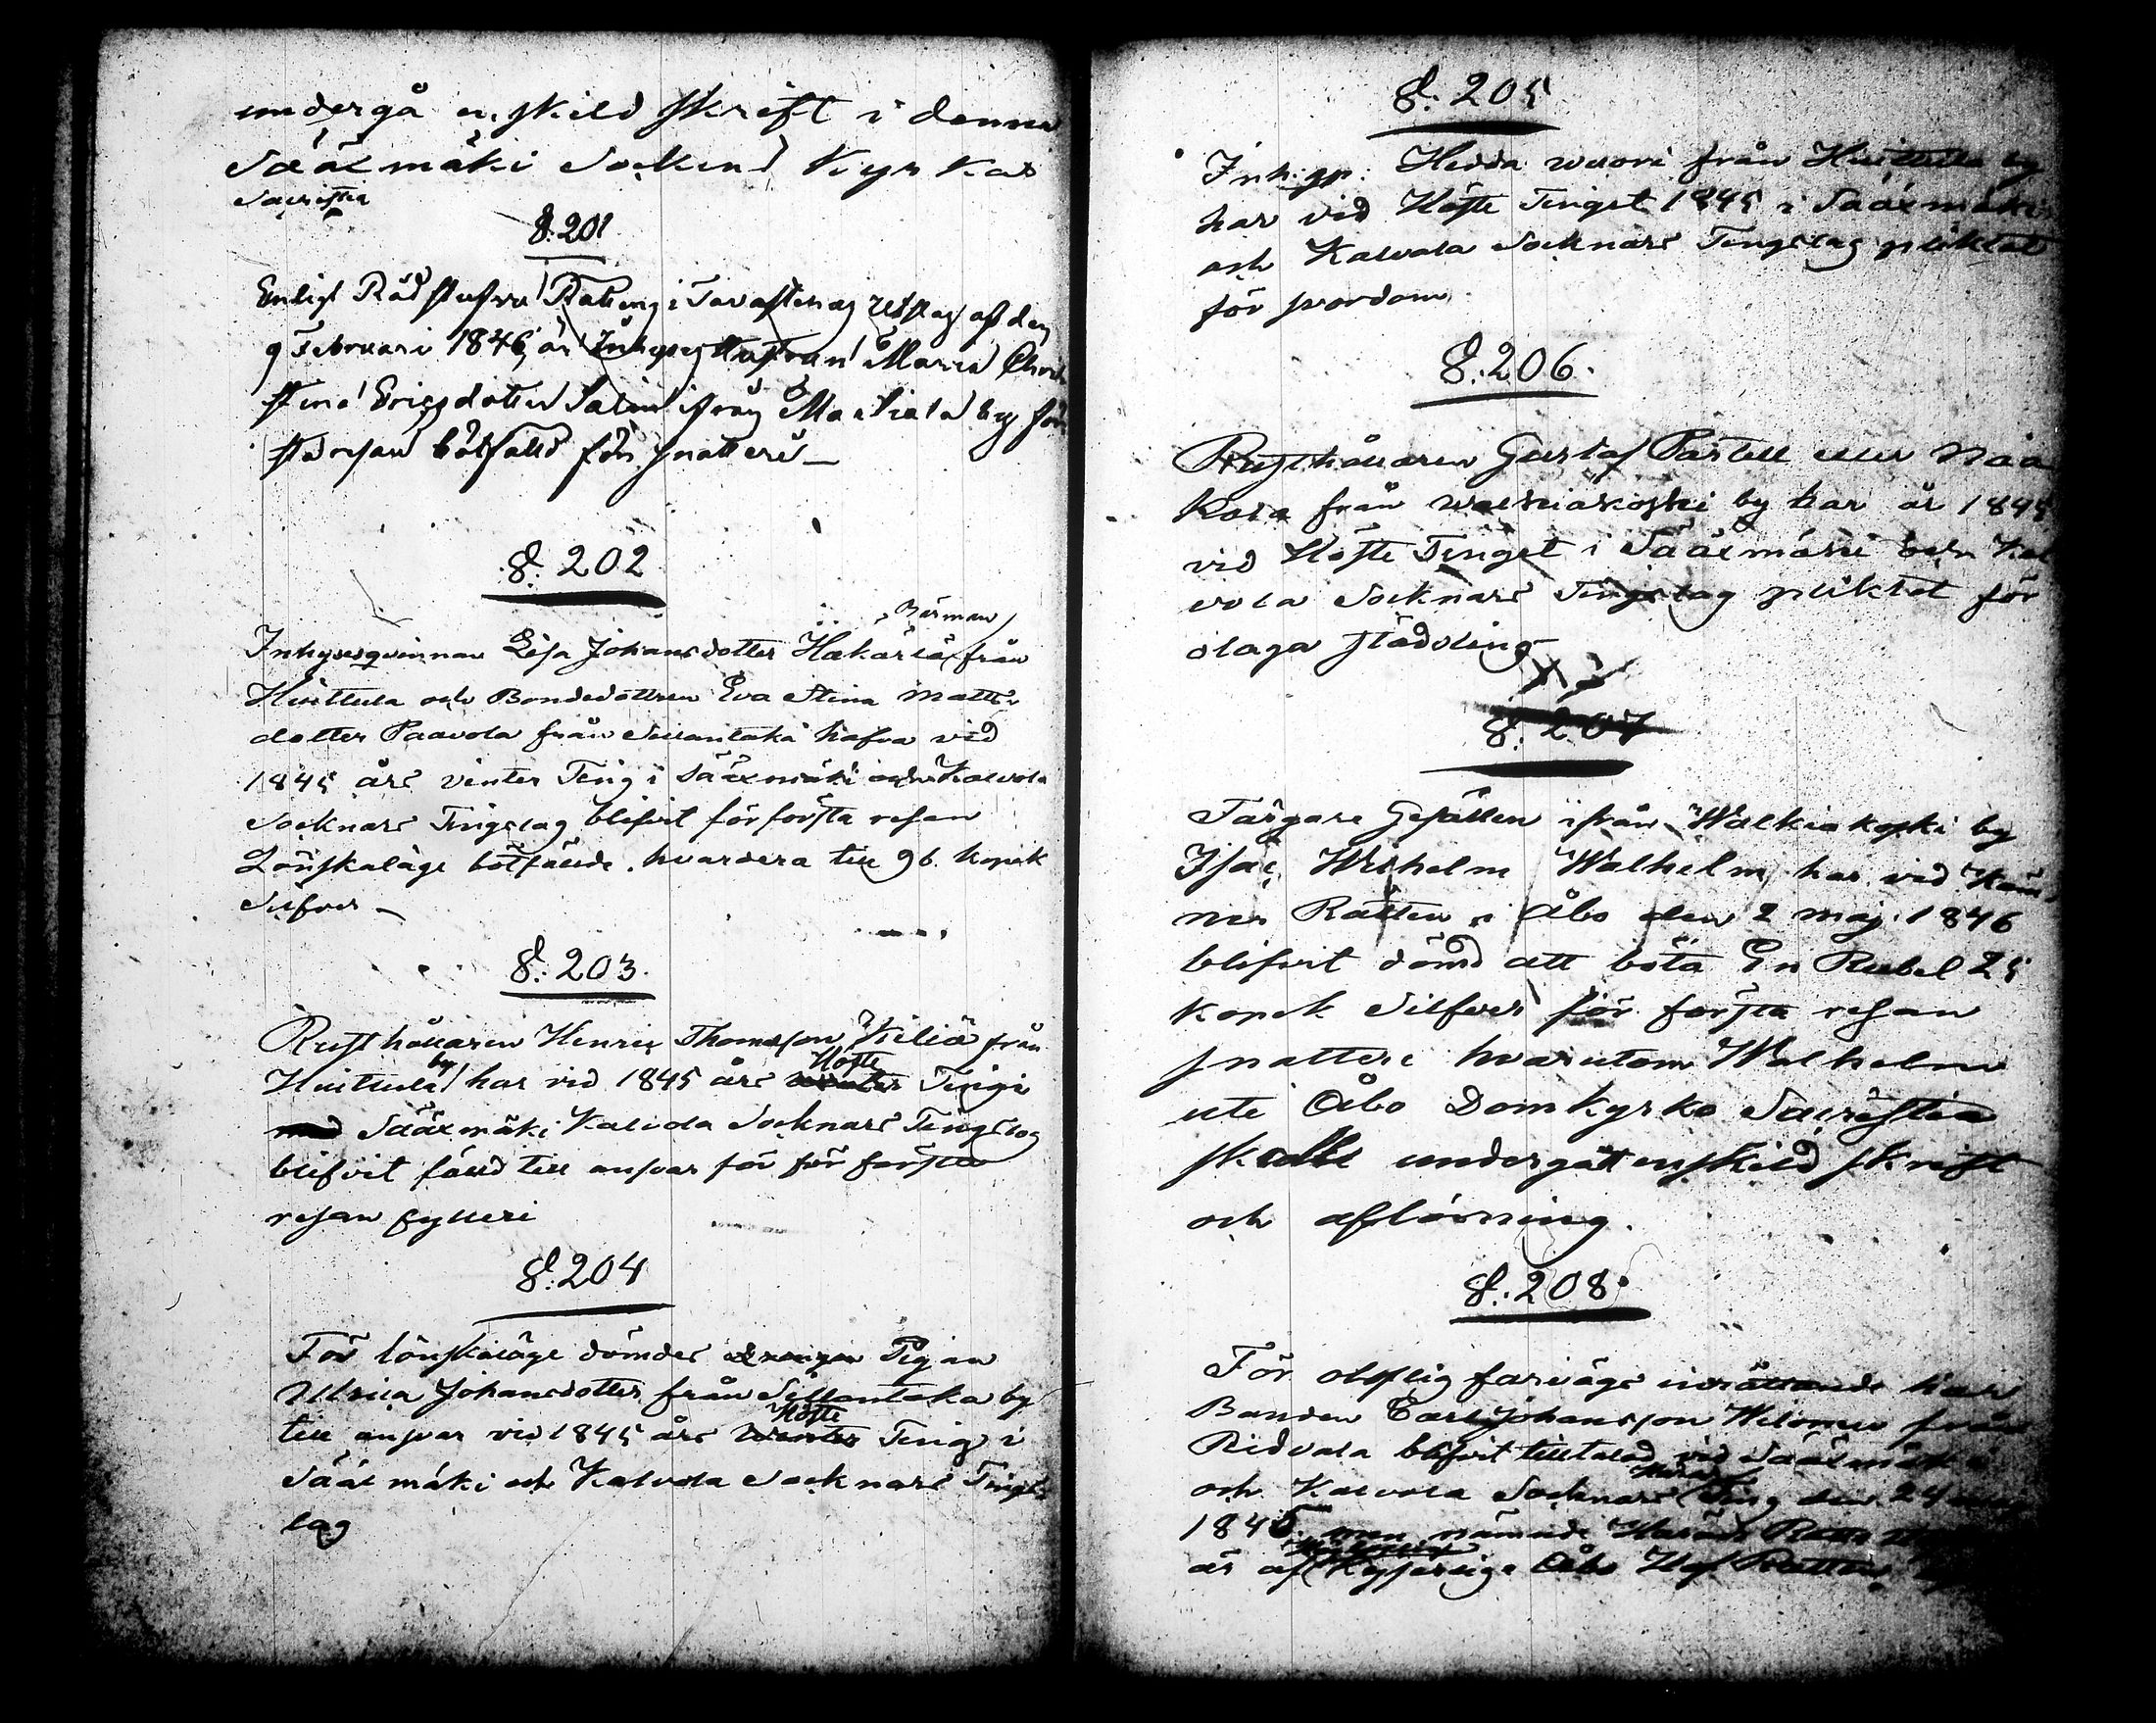 undergå enskild skrift i denna
Sääxmäki Sockens Kyrkas
Sacristia
§. 201
Enligt Rådstufvu Rättens i Tavastehus utslag af den
9 Februari 1846, är Inhyses Hustrun Maria Chri
stina Ericsdotter Salin ifrån Maatiala by för
sta resan bötfälld för snatteri
§. 202
Bärman
Inhysesqvinnan Lisa Johansdotter Häkärlä från
Huittula och Bondedottren Eva Stina Matts
dotter Paavola från Sillantaka hafva vid
1845 års vinter Ting i Sääxmäki och Kalvola
Socknars Tingslag blifvit för första resan
Lönskaläge bötfällde hvardera till 96. kopek
Silfver
§. 203.
Rusthållaren Henric Thomasson Kiliä från
by Höste
Huittula har vid 1845 års vinter Ting i
med Sääxmäki Kalvola Socknars Tingslag
blifvit fälld till ansvar för för första
resan fylleri
§. 204
För lönskaläge dömdes drängen Pigan
Ulrica Johansdotter från Sillantaka by
Höste
till ansvar vid 1845 års Winter Ting i
Sääxmäki och Kalvola Socknars Tings
lag
§. 205
Inh. qv: Hedda wuori från Huittula by
har vid Höste Tinget 1845 i Sääxmäki
och Kalvola Socknars Tingslag pliktat
för hordom.
§. 206.
Rusthållaren Gustaf Pärtell eller Nää
kola från walkiakoski by har år 1845
vid Höste Tinget i Sääxmäki och Kal
vola Socknars Tingslag pliktat för
olaga städsling
§. 207
Färgare Gesällen ifrån Walkiakoski by
Isac Wilhelm Walhelm har vid Käm
ners Rätten i Åbo den 2 maj 1846
blifvit dömd att böta En Rubel 25
kopek Silfver för första resan
snatteri hvarutom Walhelm
uti Åbo Domkyrko Sacristia
skulle undergått enskild skrift
och aflösning.
§. 208.
För olaflig farvägs inrättande har
Bonden Carl Johansson Wilomeo från
Ridvala blifvit tilltalad vid Sääxmäki
Härads
och Kalvola Socknars Ting den 24
1845. men nämnde Härads Rätts
är af Kejserliga Åbo Hof Rätten